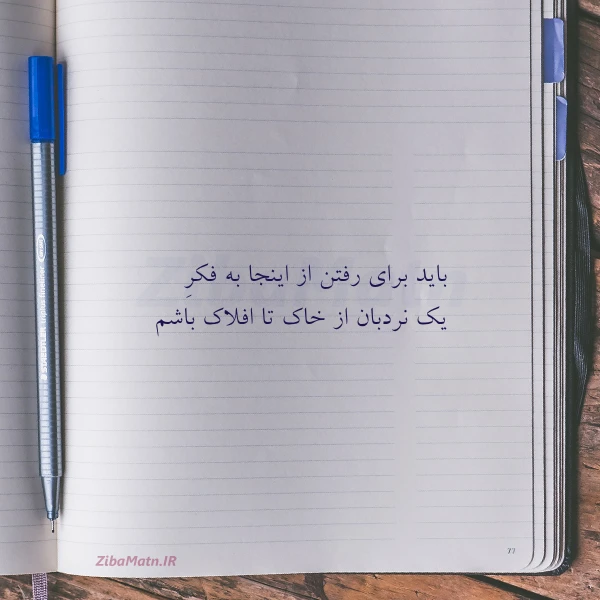 باید برای رفتن از اینجا به فکرِ
یک نردبان از خاک تا افلاک باشم
ZibaMatn.IR